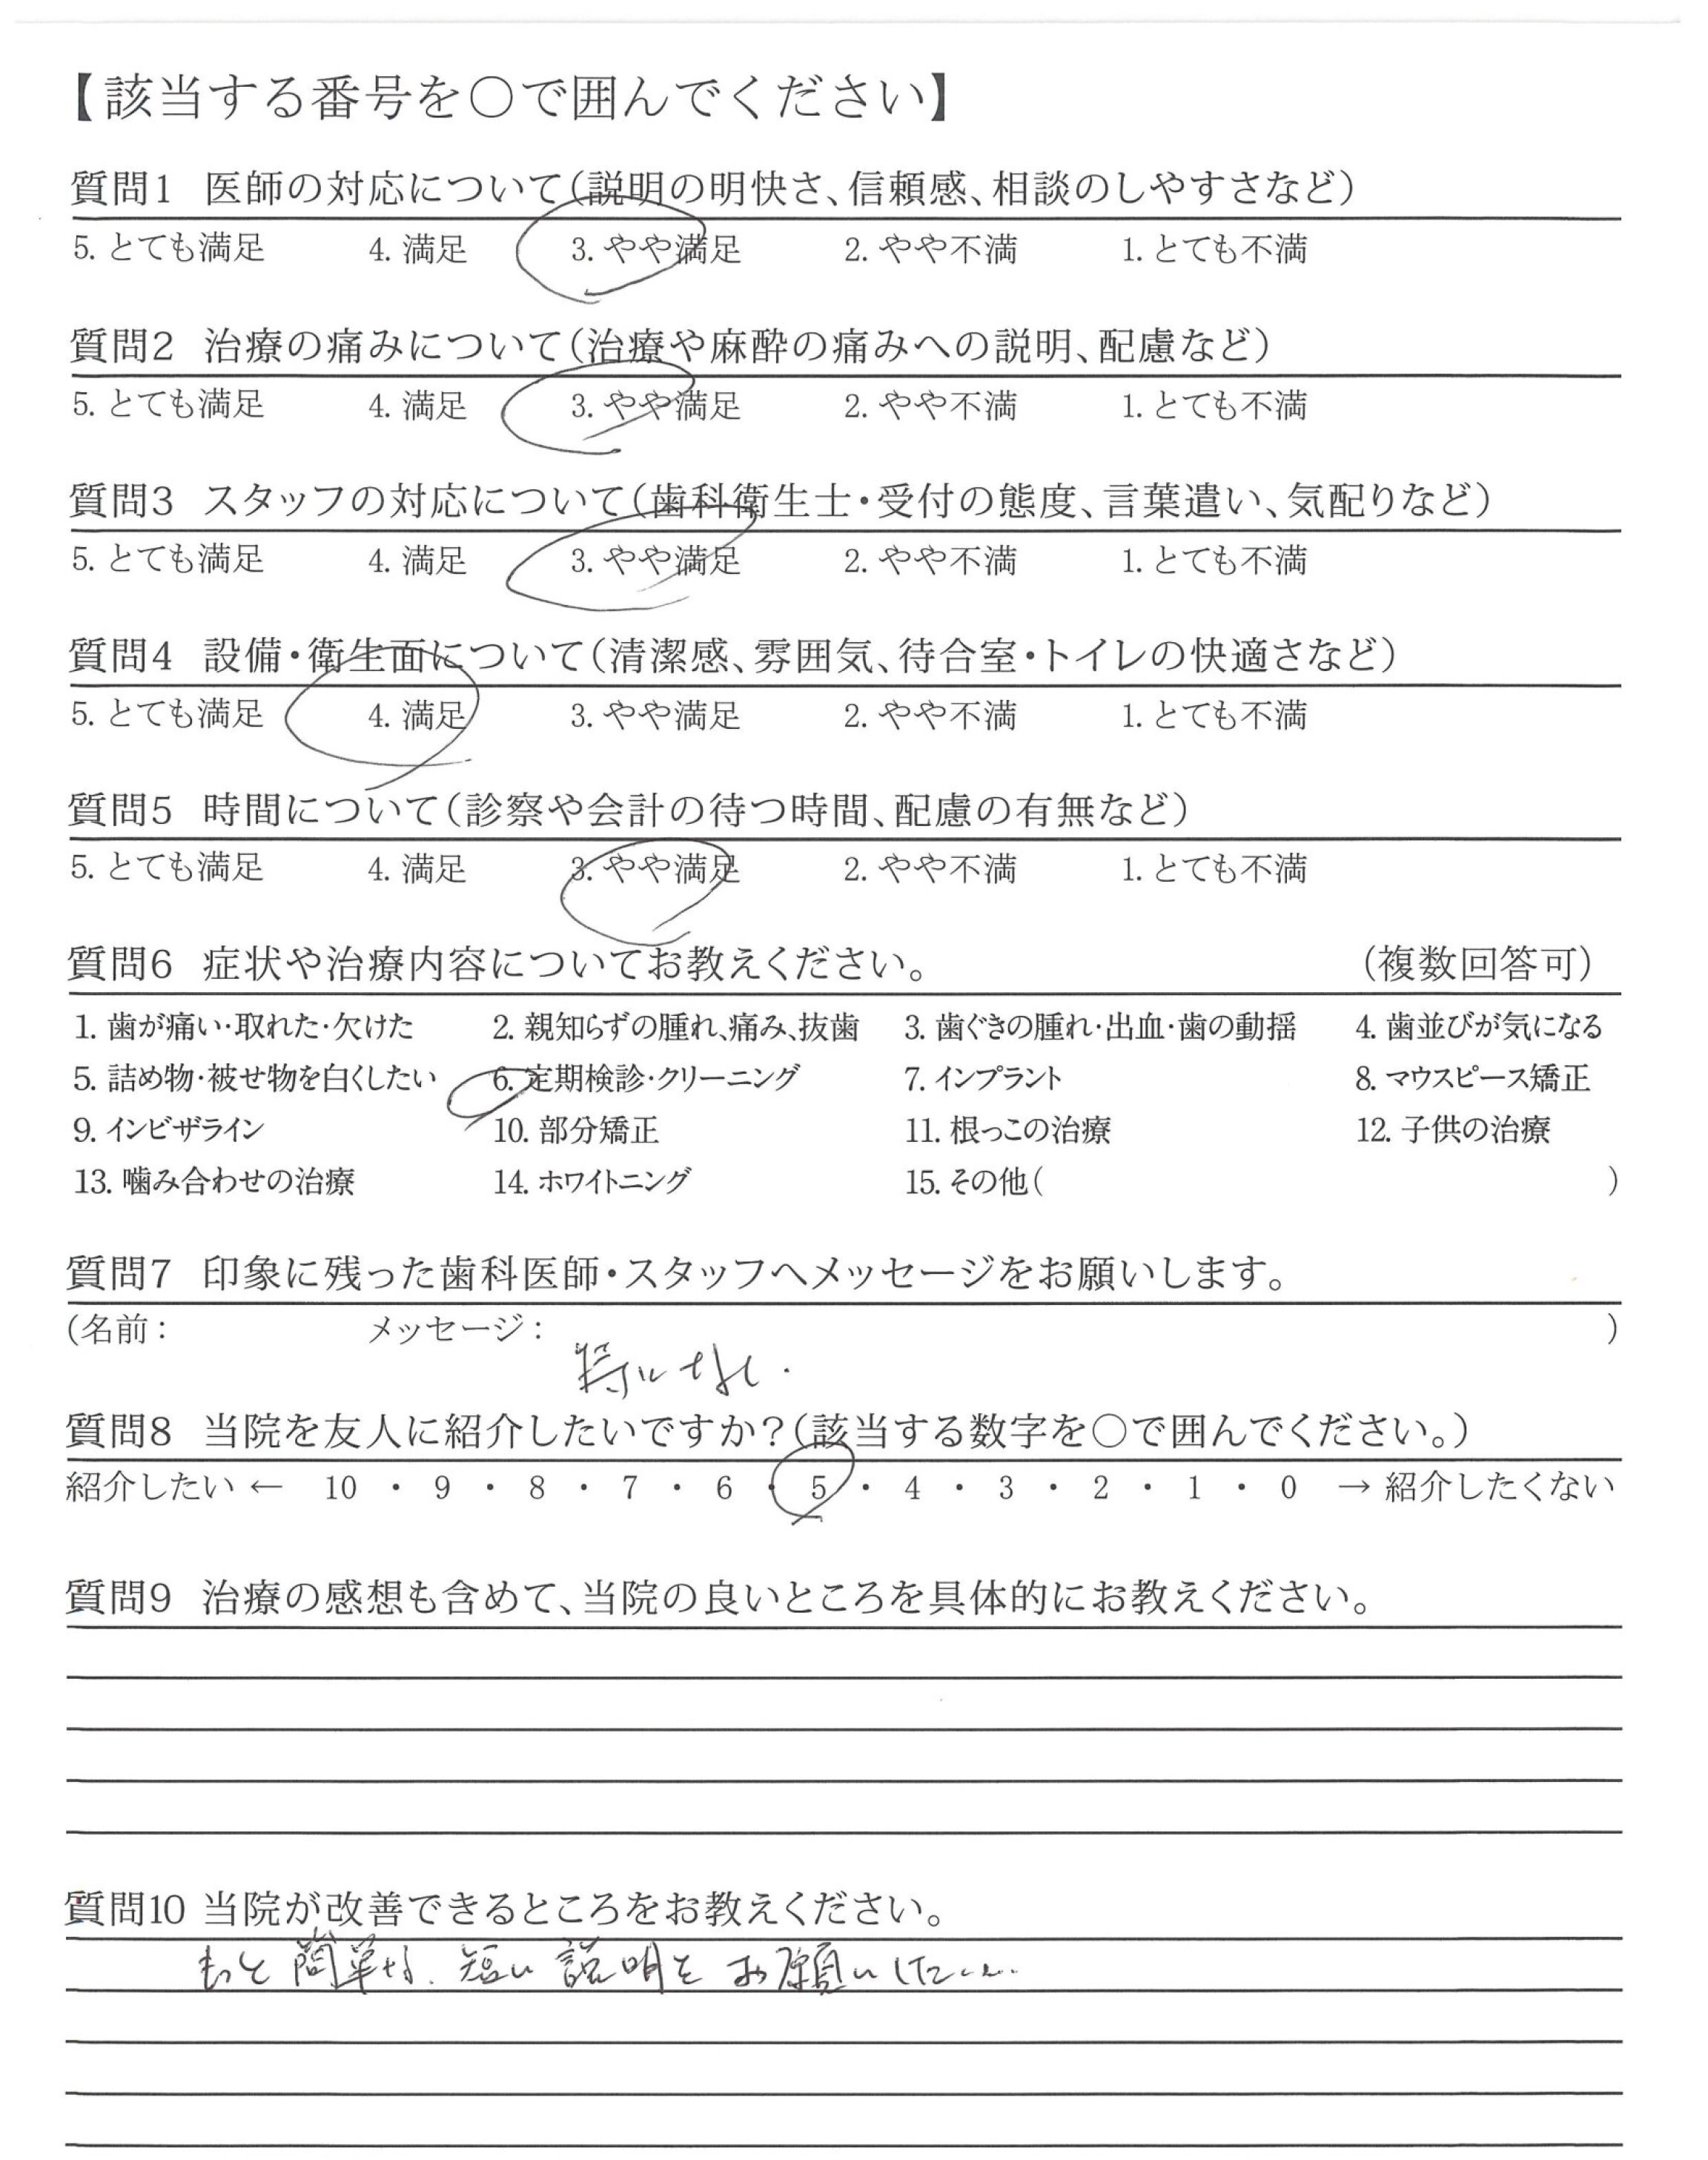 【該当する番号を○で囲んでください】
質問1 医師の対応について(説明の明快さ、信頼感、相談のしやすさなど)
5. とても満足 4. 満足 3. やや満足 2. やや不満 1. とても不満
質問2 治療の痛みについて(治療や麻酔の痛みへの説明、配慮など)
5. とても満足 4. 満足 3. やや満足 2. やや不満 1. とても不満
質問3 スタッフの対応について(歯科衛生士・受付の態度、言葉遣い、気配りなど)
5. とても満足 4. 満足 3. やや満足 2. やや不満 1. とても不満
質問4 設備・衛生面について(清潔感、雰囲気、待合室・トイレの快適さなど)
5. とても満足 4. 満足 3. やや満足 2. やや不満 1. とても不満
質問5 時間について(診察や会計の待つ時間、配慮の有無など)
5. とても満足 4. 満足 3. やや満足 2. やや不満 1. とても不満
質問6 症状や治療内容についてお教えください。 (複数回答可)
1. 歯が痛い・取れた・欠けた 2. 親知らずの腫れ、痛み、抜歯 3. 歯ぐきの腫れ・出血・歯の動揺 4. 歯並びが気になる
5. 詰め物・被せ物を白くしたい 6. 定期検診・クリーニング 7. インプラント 8. マウスピース矯正
9. インビザライン 10. 部分矯正 11. 根っこの治療 12. 子供の治療
13. 噛み合わせの治療 14. ホワイトニング 15. その他( )
質問7 印象に残った歯科医師・スタッフへメッセージをお願いします。
(名前: メッセージ: )
特になし.
質問8 当院を友人に紹介したいですか?(該当する数字を○で囲んでください。)
紹介したい ← 10 ・ 9 ・ 8 ・ 7 ・ 6 ・ 5 ・ 4 ・ 3 ・ 2 ・ 1 ・ 0 → 紹介したくない
質問9 治療の感想も含めて、当院の良いところを具体的にお教えください。
質問10 当院が改善できるところをお教えください。
もっと簡単な. 短い説明をお願いしたい…